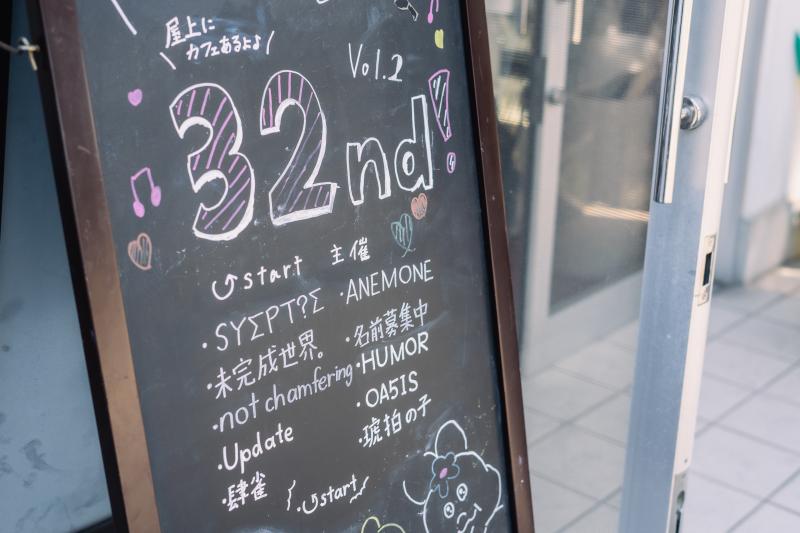 屋上に
カフェあるよ♪
Vol.2
32nd!
start 主催
・SYΣPT?Σ
・未完成世界。
・not chamfering
・Update
・肆雀
・ANEMONE
・名前募集中
・HUMOR
・OA5IS
・琥珀の子
・start